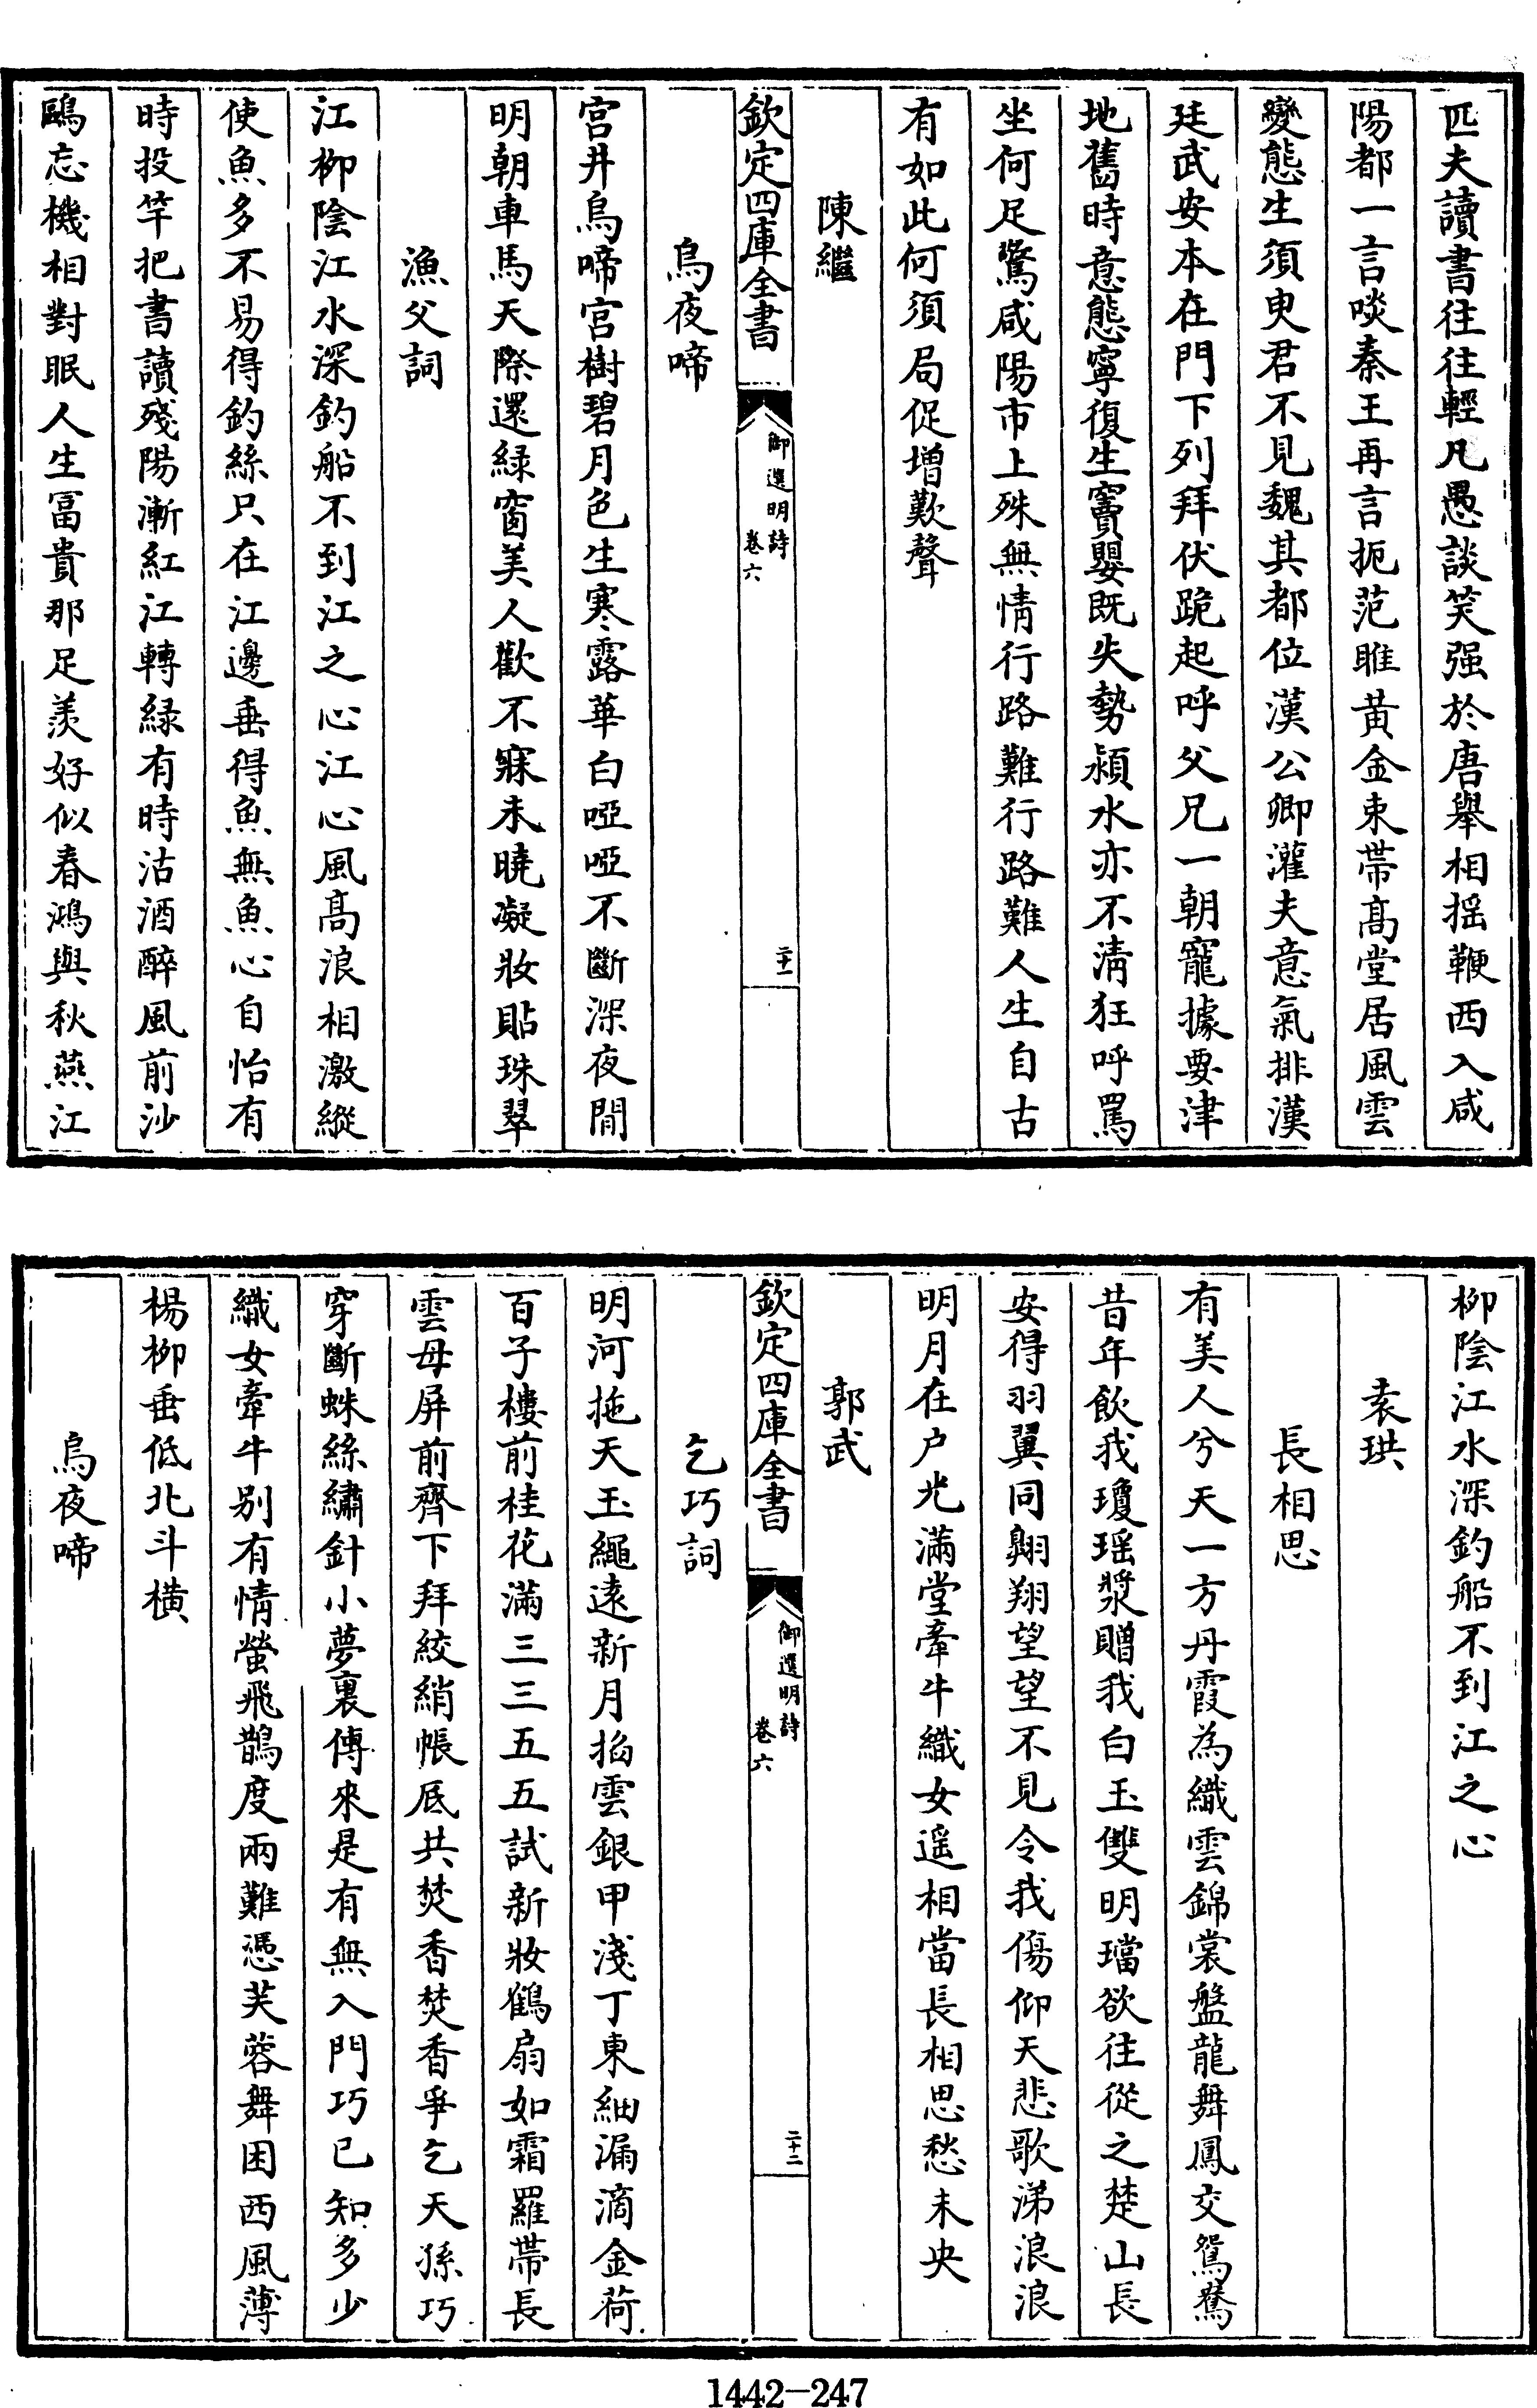 匹夫讀書往往輕凡愚談笑强於唐舉相揺鞭西入咸
陽都一言啖秦王再言扼范雎黄金束帶髙堂居風雲
變態生須臾君不見魏其都位漢公卿灌夫意氣排漢
廷武安本在門下列拜伏跪起呼父兄一朝寵據要津
地舊時意態寧復生竇嬰既失勢潁水亦不清狂呼罵
坐何足驚咸陽市上殊無情行路難行路難人生自古
有如此何須局促增歎聲
陳繼
欽定四庫全書
御選明詩
卷六
二十一
烏夜啼
宫井烏啼宫樹碧月色生寒露華白啞啞不斷深夜閒
明朝車馬天際還緑窗美人歡不寐未曉凝妝貼珠翠
漁父詞
江栁陰江水深釣船不到江之心江心風髙浪相激縱
使魚多不易得釣絲只在江邊垂得魚無魚心自怡有
時投竿把書讀殘陽漸紅江轉緑有時沽酒醉風前沙
鷗忘機相對眠人生冨貴那足羨好似春鴻與秋燕江
栁陰江水深釣船不到江之心
袁珙
長相思
有美人兮天一方丹霞為織雲錦裳盤龍舞鳳交鴛鴦
昔年飲我瓊瑶漿贈我白玉雙明璫欲往從之楚山長
安得羽翼同翺翔望望不見令我傷仰天悲歌涕浪浪
明月在户光滿堂牽牛織女遥相當長相思愁未央
郭武
欽定四庫全書
御選明詩
卷六
二十二
乞巧詞
明河拖天玉繩逺新月掐雲銀甲淺丁東細漏滴金荷
百子樓前桂花滿三三五五試新妝鶴扇如霜羅帶長
雲母屏前齊下拜絞綃帳底共焚香焚香爭乞天孫巧
穿斷蛛絲繡針小夢裏傳來是有無入門巧已知多少
織女牽牛别有情螢飛鵲度兩難憑芙蓉舞困西風薄
楊栁垂低北斗橫
烏夜啼
1442-247